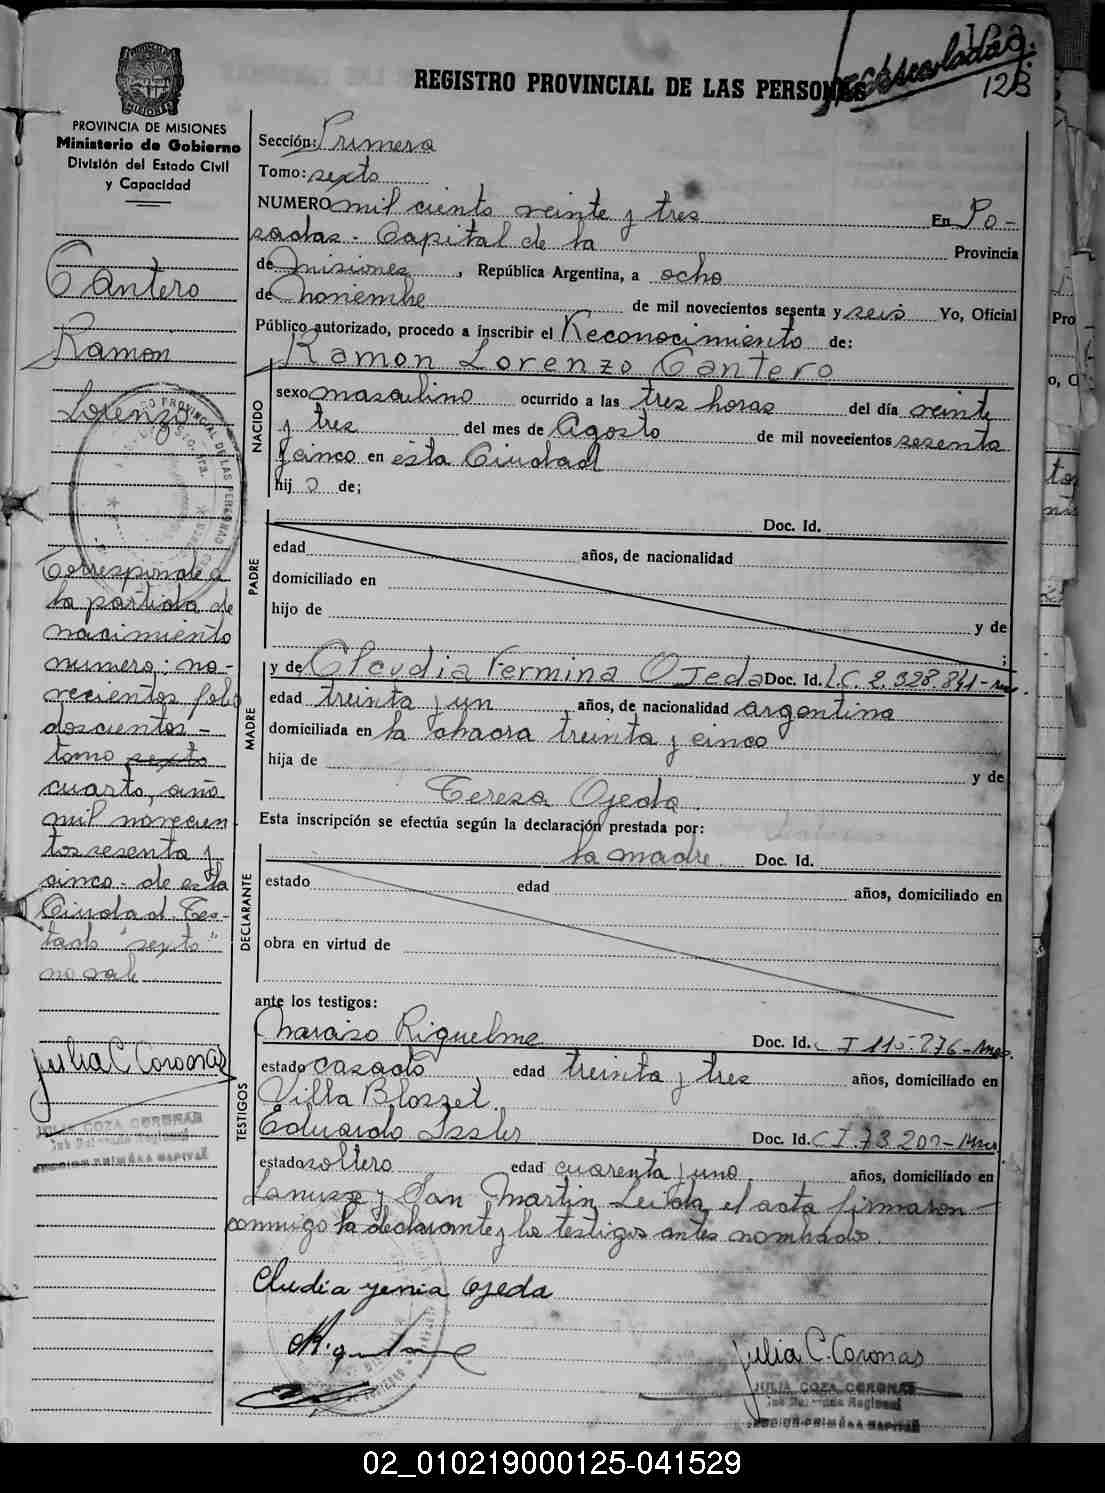 REGISTRO PROVINCIAL DE LAS PERSONAS
123
PROVINCIA DE MISIONES
Ministerio de Gobierno
División del Estado Civil
y Capacidad
Cantero
Ramon
Lorenzo
Corresponde a
la partida de
nacimiento
numero: no-
vecientos folio
doscientos -
tomo sexto
cuarto, año
mil novecien-
tos sesenta y
cinco. de esta
Ciudad. Tes-
tado "sexto"
no vale
Julia C. Coronas
JULIA COZA CORONAS
Sección: Primera
Tomo: sexto
NUMERO mil ciento veinte y tres En Po-
sadas. Capital de la Provincia
de Misiones, República Argentina, a ocho
de Noviembre de mil novecientos sesenta y seis Yo, Oficial
Público autorizado, procedo a inscribir el Reconocimiento de:
Ramon Lorenzo Cantero
NACIDO
sexo masculino ocurrido a las tres horas del día veinte
y tres del mes de Agosto de mil novecientos sesenta
y cinco en esta Ciudad
hijo de;
PADRE
Doc. Id.
edad años, de nacionalidad
domiciliado en
hijo de
y de
;
MADRE
y de Claudia Fermina Ojeda Doc. Id. L.C. 2.328.841-
edad treinta y un años, de nacionalidad argentina
domiciliada en la chacra treinta y cinco
hija de
y de
Teresa Ojeda.
Esta inscripción se efectúa según la declaración prestada por:
DECLARANTE
la madre. Doc. Id.
estado edad años, domiciliado en
obra en virtud de
ante los testigos:
TESTIGOS
Narciso Riquelme Doc. Id. C I 110.276-
estado casado edad treinta y tres años, domiciliado en
Villa Blosset.
Eduardo Doc. Id. C I. 73.200-
estado soltero edad cuarenta y uno años, domiciliado en
Lanusse y San Martin. Leida el acta firmaron
conmigo la declarante y los testigos antes nombrados.
Cludia Ojeda
Julia C. Coronas
JULIA COZA CORONAS
Sub Delegada Regional
SECCION PRIMERA CAPITAL
02_010219000125-041529